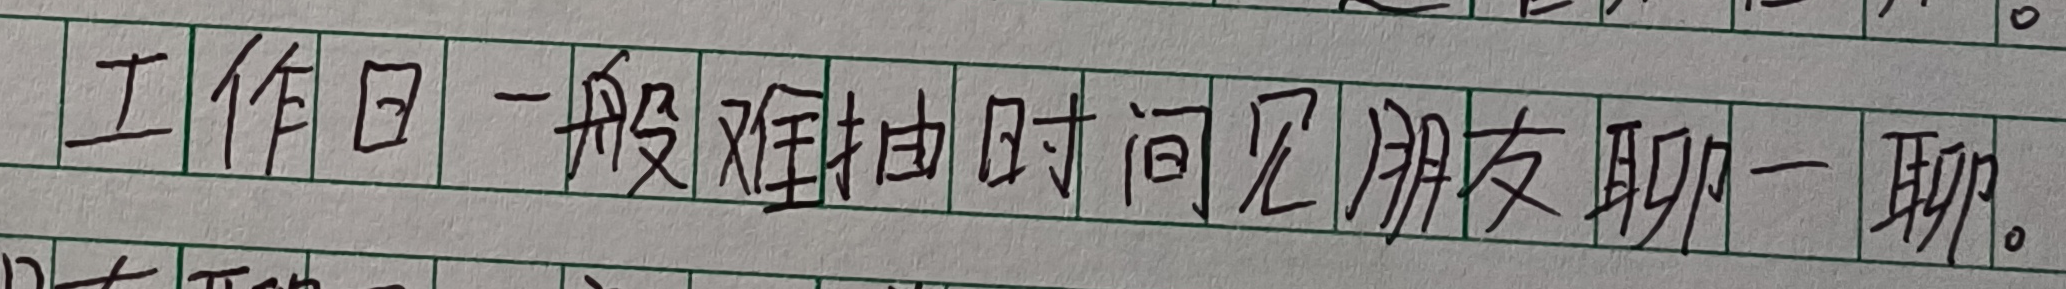 工作日一般难抽时间见朋友聊一聊。